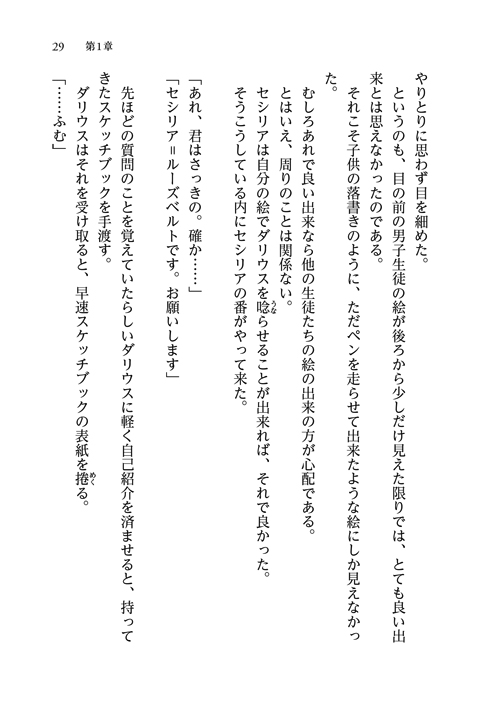 29 第1章
やりとりに思わず目を細めた。
というのも、目の前の男子生徒の絵が後ろから少しだけ見えた限りでは、とても良い出
来とは思えなかったのである。
それこそ子供の落書きのように、ただペンを走らせて出来たような絵にしか見えなかっ
た。
むしろあれで良い出来なら他の生徒たちの絵の出来の方が心配である。
とはいえ、周りのことは関係ない。
セシリアは自分の絵でダリウスを唸うならせることが出来れば、それで良かった。
そうこうしている内にセシリアの番がやって来た。
「あれ、君はさっきの。確か……」
「セシリア＝ルーズベルトです。お願いします」
先ほどの質問のことを覚えていたらしいダリウスに軽く自己紹介を済ませると、持って
きたスケッチブックを手渡す。
ダリウスはそれを受け取ると、早速スケッチブックの表紙を捲めくる。
「……ふむ」